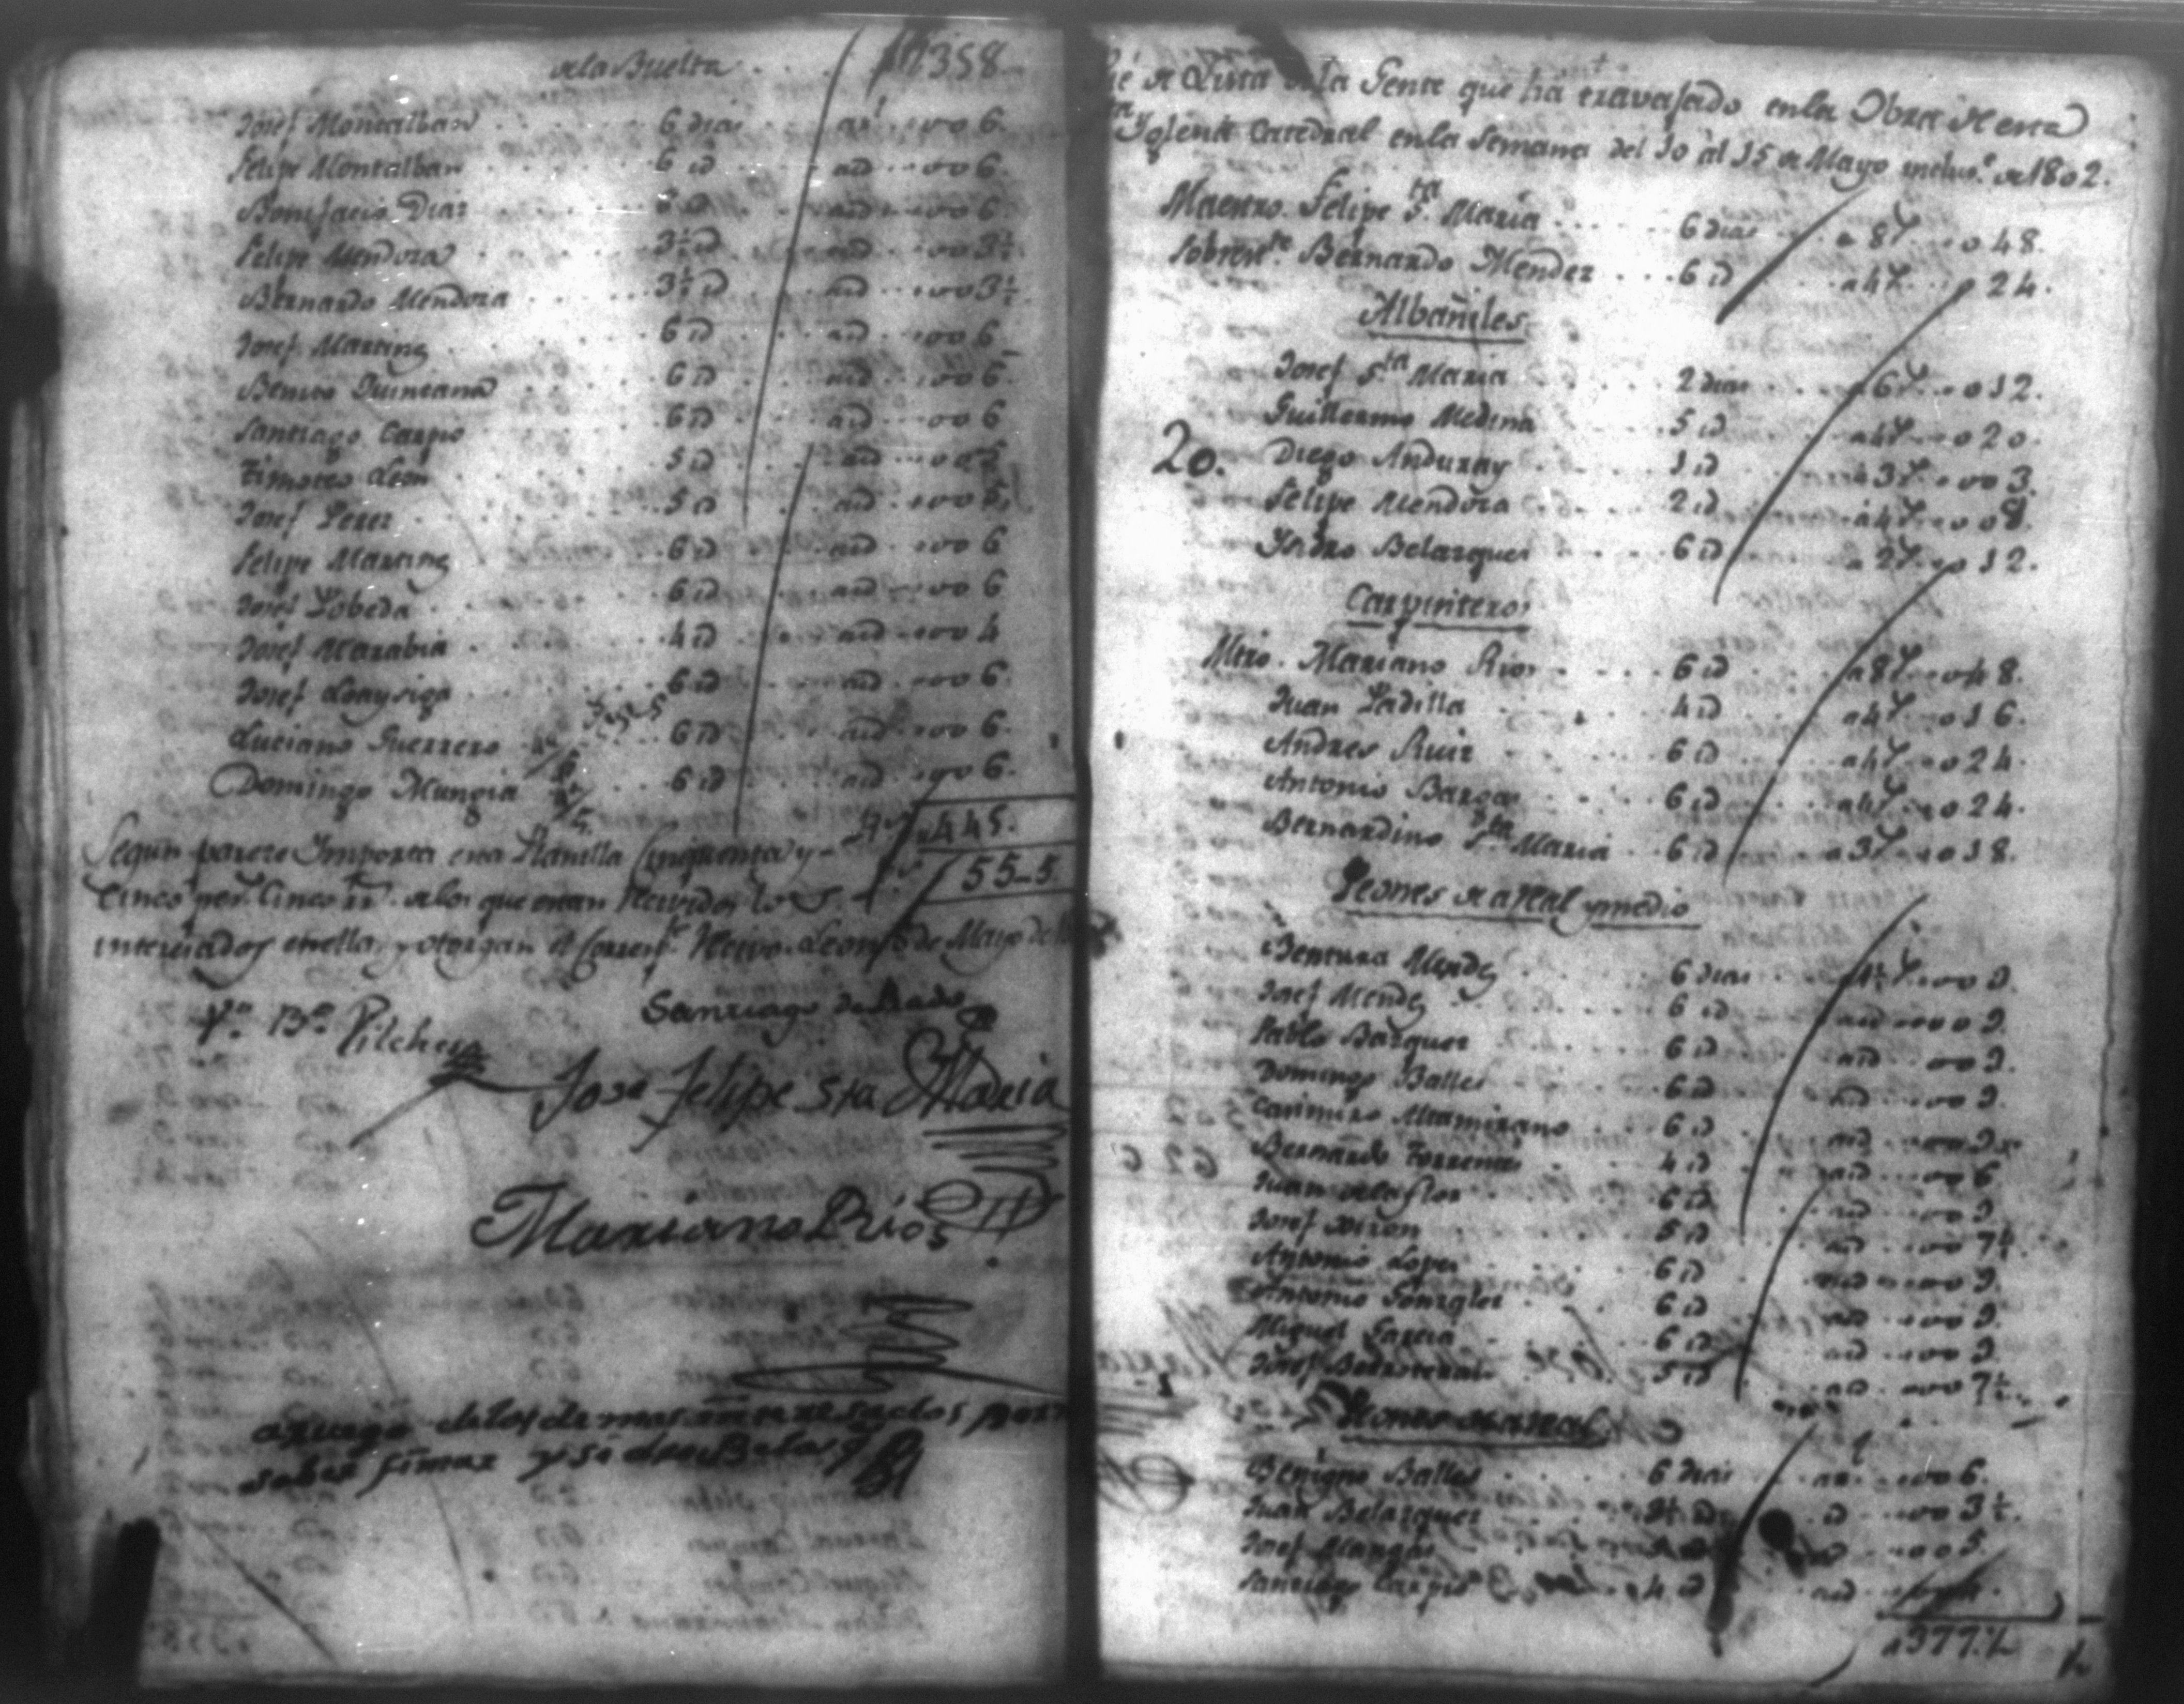 de la Buelta . . . 358
Josef Montalban . . . 6 dias . . . a 1 . . . oo 6.
Felipe Montalban . . . 6 id . . . aid . . . oo 6.
Bonifacio Diaz . . . 6 id . . . aid . . . oo 6.
Felipe Mendoza . . . 3½ id . . . aid . . . oo 3½.
Bernardo Mendoza . . . 3½ id . . . aid . . . oo 3½.
Josef Marting . . . 6 id . . . aid . . . oo 6.
Benito Quintana . . . 6 id . . . aid . . . oo 6.
Santiago Carpio . . . 6 id . . . aid . . . oo 6
Timoteo Leon . . . 5 id . . . aid . . . oo 5
Josef Perez . . . 5 id . . . aid . . . oo 5
Felipe Marting . . . 6 id . . . aid . . . oo 6
Josef Pobeda . . . 6 id . . . aid . . . oo 6
Josef Narabia . . . 4 id . . . aid . . . oo 4
Josef Loaysiga . . . 6 id . . . aid . . . oo 6.
Luciano Guerrero . . . 6 id . . . aid . . . oo 6.
Domingo Mungia . . . 6 id . . . aid . . . oo 6.
Segun parece Importa esta Planilla Cinquenta y 445.
Cinco pes. Cinco rr. de los que estan Recividos los 55-5
interesados en ella, y otorgan el Corrente. Recivo. Leon de Mayo de
Vo. Bo. Pilches
Santiago de Rado
Jose Felipe Sta Maria
Mariano Rios
a ruego de los demas interesados por no
saber firmar y si de Belasq
Pie de Lista de la Gente que ha travajado en la Obra de esta
Sta Yglesia Catedral en la Semana del 10 al 15 de Mayo inclus.e de 1802.
Maestro. Felipe Sta. Maria . . . 6 dias . . . a 8 r . . . o 48.
Sobreste. Bernardo Mendez . . . 6 id . . . a 4 r . . . o 24.
Albañiles
Josef Sta Maria . . . 2 dias . . . a 6 r . . . o 12.
Guillermo Medina . . . 5 id . . . a 4 r . . . o 20.
20. Diego Anduray . . . 1 id . . . a 3 r . . . oo 3.
Felipe Mendoza . . . 2 id . . . a 4 r . . . oo 8.
Ysidro Belazquez . . . 6 id . . . a 2 r . . . o 12.
Carpinteros
Mtro. Mariano Rios . . . 6 id . . . a 8 r . . . o 48.
Juan Padilla . . . 4 id . . . a 4 r . . . o 16.
Andres Ruiz . . . 6 id . . . a 4 r . . . o 24.
Antonio Bargas . . . 6 id . . . a 4 r . . . o 24.
Bernardino Sta Maria . . . 6 id . . . a 3 r . . . o 18.
Peones de a Real y medio
Bentura Mendez . . . 6 dias . . . a 1½ r . . . oo 9.
Josef Mendez . . . 6 id . . . aid . . . oo 9.
Pablo Bazquez . . . 6 id . . . aid . . . oo 9.
Domingo Balles . . . 6 id . . . aid . . . oo 9.
Casimiro Altamirano . . . 6 id . . . aid . . . oo 9.
Bernardo Torrentes . . . 4 id . . . aid . . . oo 6
Juan de la flor . . . 6 id . . . aid . . . oo 9
Josef Xiron . . . 5 id . . . aid . . . oo 7½.
Antonio Lopez . . . 6 id . . . aid . . . oo 9
Antonio Gonzales . . . 6 id . . . aid . . . oo 9.
Miguel Garcia . . . 6 id . . . aid . . . oo 9
Josef . . . 5 id . . . aid . . . oo 7½.
Peones de a Real
Benigno Balles . . . 6 dias . . . a 1 . . . oo 6.
Juan Belazquez . . . 3½ id . . . id . . . oo 3½.
Josef . . . oo 5
Santiago Carpio . . . 4 id . . . aid . . . 4.
377.½